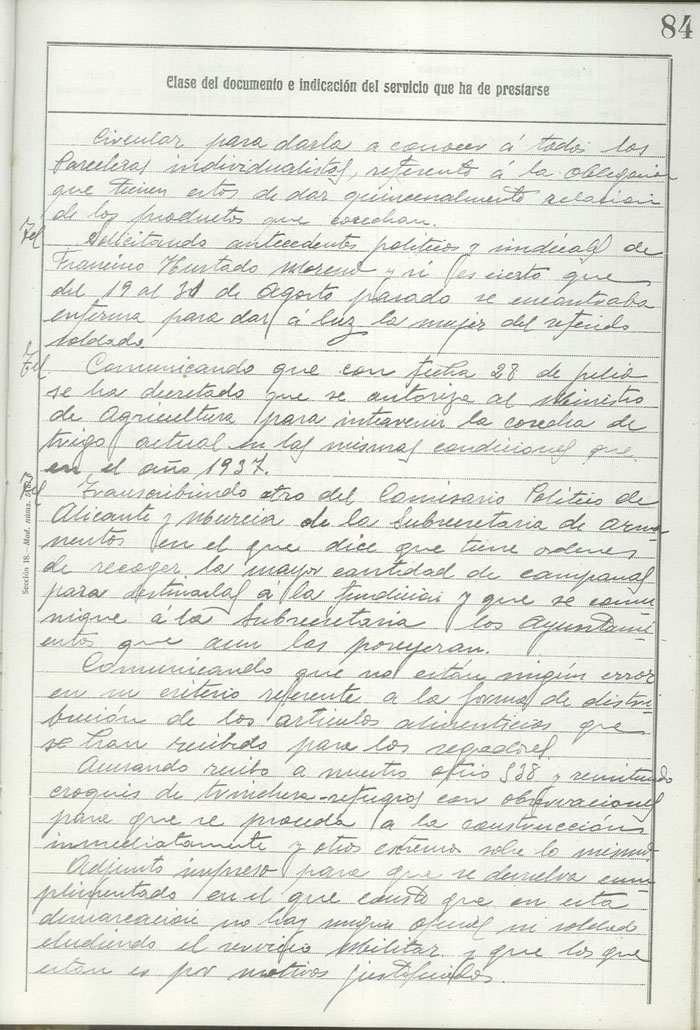 84
Clase del documento e indicación del servicio que ha de prestarse
Circular para darla a conocer á todos los
Parceleros individualistas, referente á la obligacion
que tienen estos de dar quincenalmente relacion
de los productos que cosechan.
Solicitando antecedentes politicos y sindicales de
Francisco Hurtado Moreno y si es cierto que
del 19 al 31 de Agosto pasado se encontraba
enferma para dar á luz la mujer del referido
soldado.
Comunicando que con fecha 28 de julio
se ha decretado que se autorize al Ministro
de Agricultura para intervenir la cosecha de
trigo actual en las mismas condiciones que
en el año 1937.
Transcribiendo otro del Comisario Politico de
Alicante y Murcia de la Subsecretaria de Arma-
mentos en el que dice que tiene ordenes
de recoger la mayor cantidad de campanas
para destinarlas a la fundicion y que se comu
nique á la Subsecretaria los Ayuntami-
entos que aun las poseyeran.
Comunicando que no están ningún error
en su criterio referente a la forma de distri-
bución de los articulos alimenticios que
se han recibido para los segadores.
Acusando recibo a nuestro oficio 538 y remitiendo
croquis de trinchera-refugios con observaciones
para que se proceda a la construcción
inmediatamente y otros extremos sobre lo mismo.
Adjunto impreso para que se devuelva cum-
plimentado en el que conste que en esta
demarcacion no hay ningun oficial ni soldado
eludiendo el servicio Militar y que los que
estan es por motivos justificados.
Sección 18.-Mod. núm.